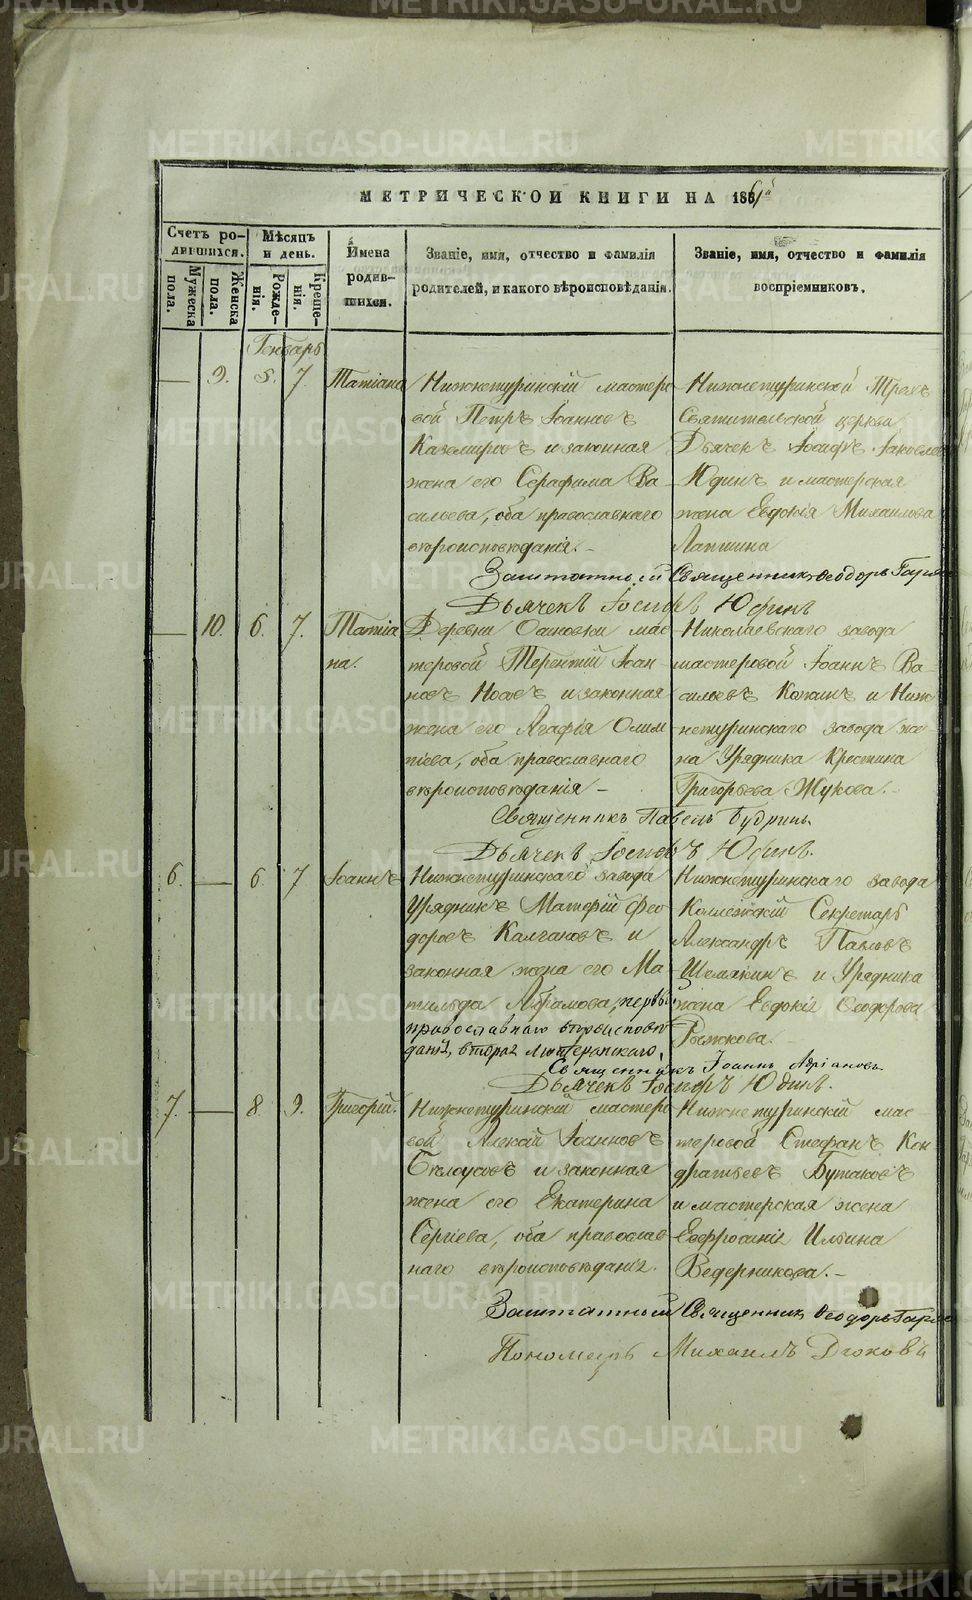 МЕТРИЧЕСКОЙ КНИГИ НА 1861й
Счетъ родившихся.
Мужеска пола.
Женска пола.
Мѣсяцъ и день.
Рожденія.
Крещенія.
Имена родившихся.
Званіе, имя, отчество и фамилія
родителей, и какого вѣроисповѣданія.
Званіе, имя, отчество и фамилія
воспріемниковъ.
Генварь
— 9. 5. 7. Татіана
Нижнетуринскій мастеро-
вой Петръ Іоанновъ
Каземировъ и законная
жена его Серафима Ва-
сильева, оба православнаго
вѣроисповѣданія.-
Нижнетуринской Трехъ
Святительской церкви
Дьячекъ Іосифъ Іаковлевъ
Юдинъ и мастерская
жена Евдокія Михаилова
Лапшина
Заштатный Священникъ Ѳеодоръ
Дьячекъ Іосифъ Юдинъ
— 10. 6. 7. Татіа
на.
Деревни Основки мас-
теровой Терентій Іоан-
новъ Носовъ и законная
жена его Агафія Олим
піева, оба православнаго
вѣроисповѣданія -
Николаевскаго завода
мастеровой Іоаннъ Ва-
сильевъ и Ниж-
нетуринскаго завода же-
на Урядника Крестина
Григорьева Жукова.-
Священникъ Павелъ Будринъ
Дьячекъ Іосифъ Юдинъ.
6. — 6. 7 Іоаннъ
Нижнетуринскаго завода
Урядникъ Матфій Ѳео
доровъ Калгановъ и
законная жена его Ма-
тильда Абрамова, первый
православнаго вѣроисповѣ
данія, вторая Лютеранскаго.
Нижнетуринскаго завода
Коллежскій Секретарь
Александръ Павловъ
Шемякинъ и Урядника
жена Евдокія Ѳеодорова
Рыжкова.
Священникъ Іоаннъ Адріановъ
Дьячекъ Іосифъ Юдинъ.
7. — 8. 9. Григорій.
Нижнетуринскій мастеро
вой Алексій Іоанновъ
Бѣлоусовъ и законная
жена его Екатерина
Сергіева, оба православ
наго вѣроисповѣданія.
Нижнетуринскій мас-
теровой Стефанъ Кон
дратьевъ Бутаковъ
и мастерская жена
Евфросинія Ильина
Ведерникова.-
Заштатный Священникъ Ѳеодоръ
Пономарь Михаилъ Дюковъ
METRIKI.GASO-URAL.RU